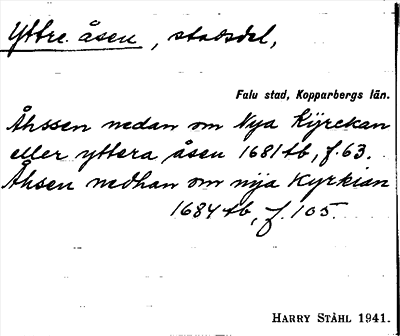 Yttre åsen, stadsdel,
Falu stad, Kopparbergs län.
Åhssen nedan om Nya Kijrckan
eller yttera åsen 1681 tb, f. 63.
Åhsen nedhan om nija Kyrkian
1684 tb, f. 105.
HARRY STÅHL 1941.